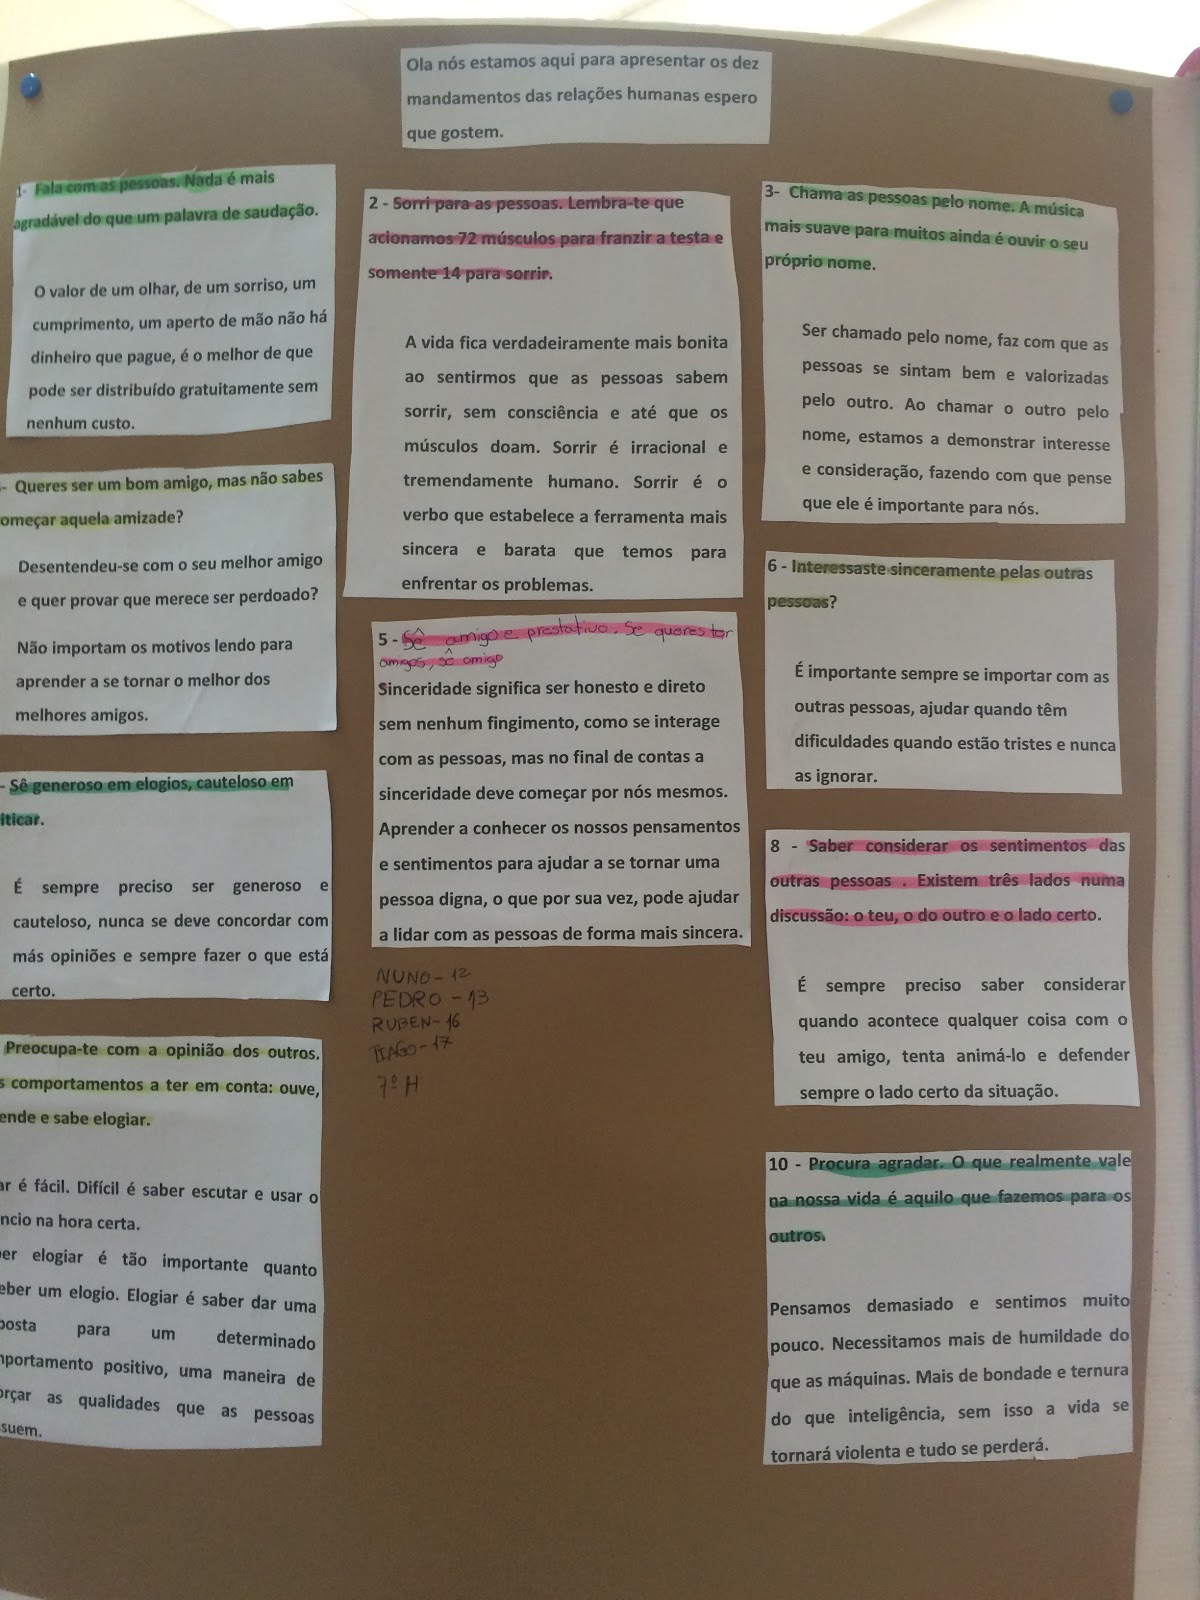 Ola nós estamos aqui para apresentar os dez
mandamentos das relações humanas espero
que gostem.
1- Fala com as pessoas. Nada é mais
agradável do que um palavra de saudação.
O valor de um olhar, de um sorriso, um
cumprimento, um aperto de mão não há
dinheiro que pague, é o melhor de que
pode ser distribuído gratuitamente sem
nenhum custo.
2 - Sorri para as pessoas. Lembra-te que
acionamos 72 músculos para franzir a testa e
somente 14 para sorrir.
A vida fica verdadeiramente mais bonita
ao sentirmos que as pessoas sabem
sorrir, sem consciência e até que os
músculos doam. Sorrir é irracional e
tremendamente humano. Sorrir é o
verbo que estabelece a ferramenta mais
sincera e barata que temos para
enfrentar os problemas.
3- Chama as pessoas pelo nome. A música
mais suave para muitos ainda é ouvir o seu
próprio nome.
Ser chamado pelo nome, faz com que as
pessoas se sintam bem e valorizadas
pelo outro. Ao chamar o outro pelo
nome, estamos a demonstrar interesse
e consideração, fazendo com que pense
que ele é importante para nós.
- Queres ser um bom amigo, mas não sabes
omeçar aquela amizade?
Desentendeu-se com o seu melhor amigo
e quer provar que merece ser perdoado?
Não importam os motivos lendo para
aprender a se tornar o melhor dos
melhores amigos.
5 - Sê amigo e prestativo. Se queres ter
amigos, sê amigo
Sinceridade significa ser honesto e direto
sem nenhum fingimento, como se interage
com as pessoas, mas no final de contas a
sinceridade deve começar por nós mesmos.
Aprender a conhecer os nossos pensamentos
e sentimentos para ajudar a se tornar uma
pessoa digna, o que por sua vez, pode ajudar
a lidar com as pessoas de forma mais sincera.
6 - Interessaste sinceramente pelas outras
pessoas?
É importante sempre se importar com as
outras pessoas, ajudar quando têm
dificuldades quando estão tristes e nunca
as ignorar.
- Sê generoso em elogios, cauteloso em
iticar.
É sempre preciso ser generoso e
cauteloso, nunca se deve concordar com
más opiniões e sempre fazer o que está
certo.
8 - Saber considerar os sentimentos das
outras pessoas . Existem três lados numa
discussão: o teu, o do outro e o lado certo.
É sempre preciso saber considerar
quando acontece qualquer coisa com o
teu amigo, tenta animá-lo e defender
sempre o lado certo da situação.
Preocupa-te com a opinião dos outros.
s comportamentos a ter em conta: ouve,
ende e sabe elogiar.
ar é fácil. Difícil é saber escutar e usar o
ncio na hora certa.
er elogiar é tão importante quanto
eber um elogio. Elogiar é saber dar uma
posta para um determinado
mportamento positivo, uma maneira de
orçar as qualidades que as pessoas
suem.
10 - Procura agradar. O que realmente vale
na nossa vida é aquilo que fazemos para os
outros.
Pensamos demasiado e sentimos muito
pouco. Necessitamos mais de humildade do
que as máquinas. Mais de bondade e ternura
do que inteligência, sem isso a vida se
tornará violenta e tudo se perderá.
NUNO - 12
PEDRO - 13
RUBEN - 16
TIAGO - 17
7º H